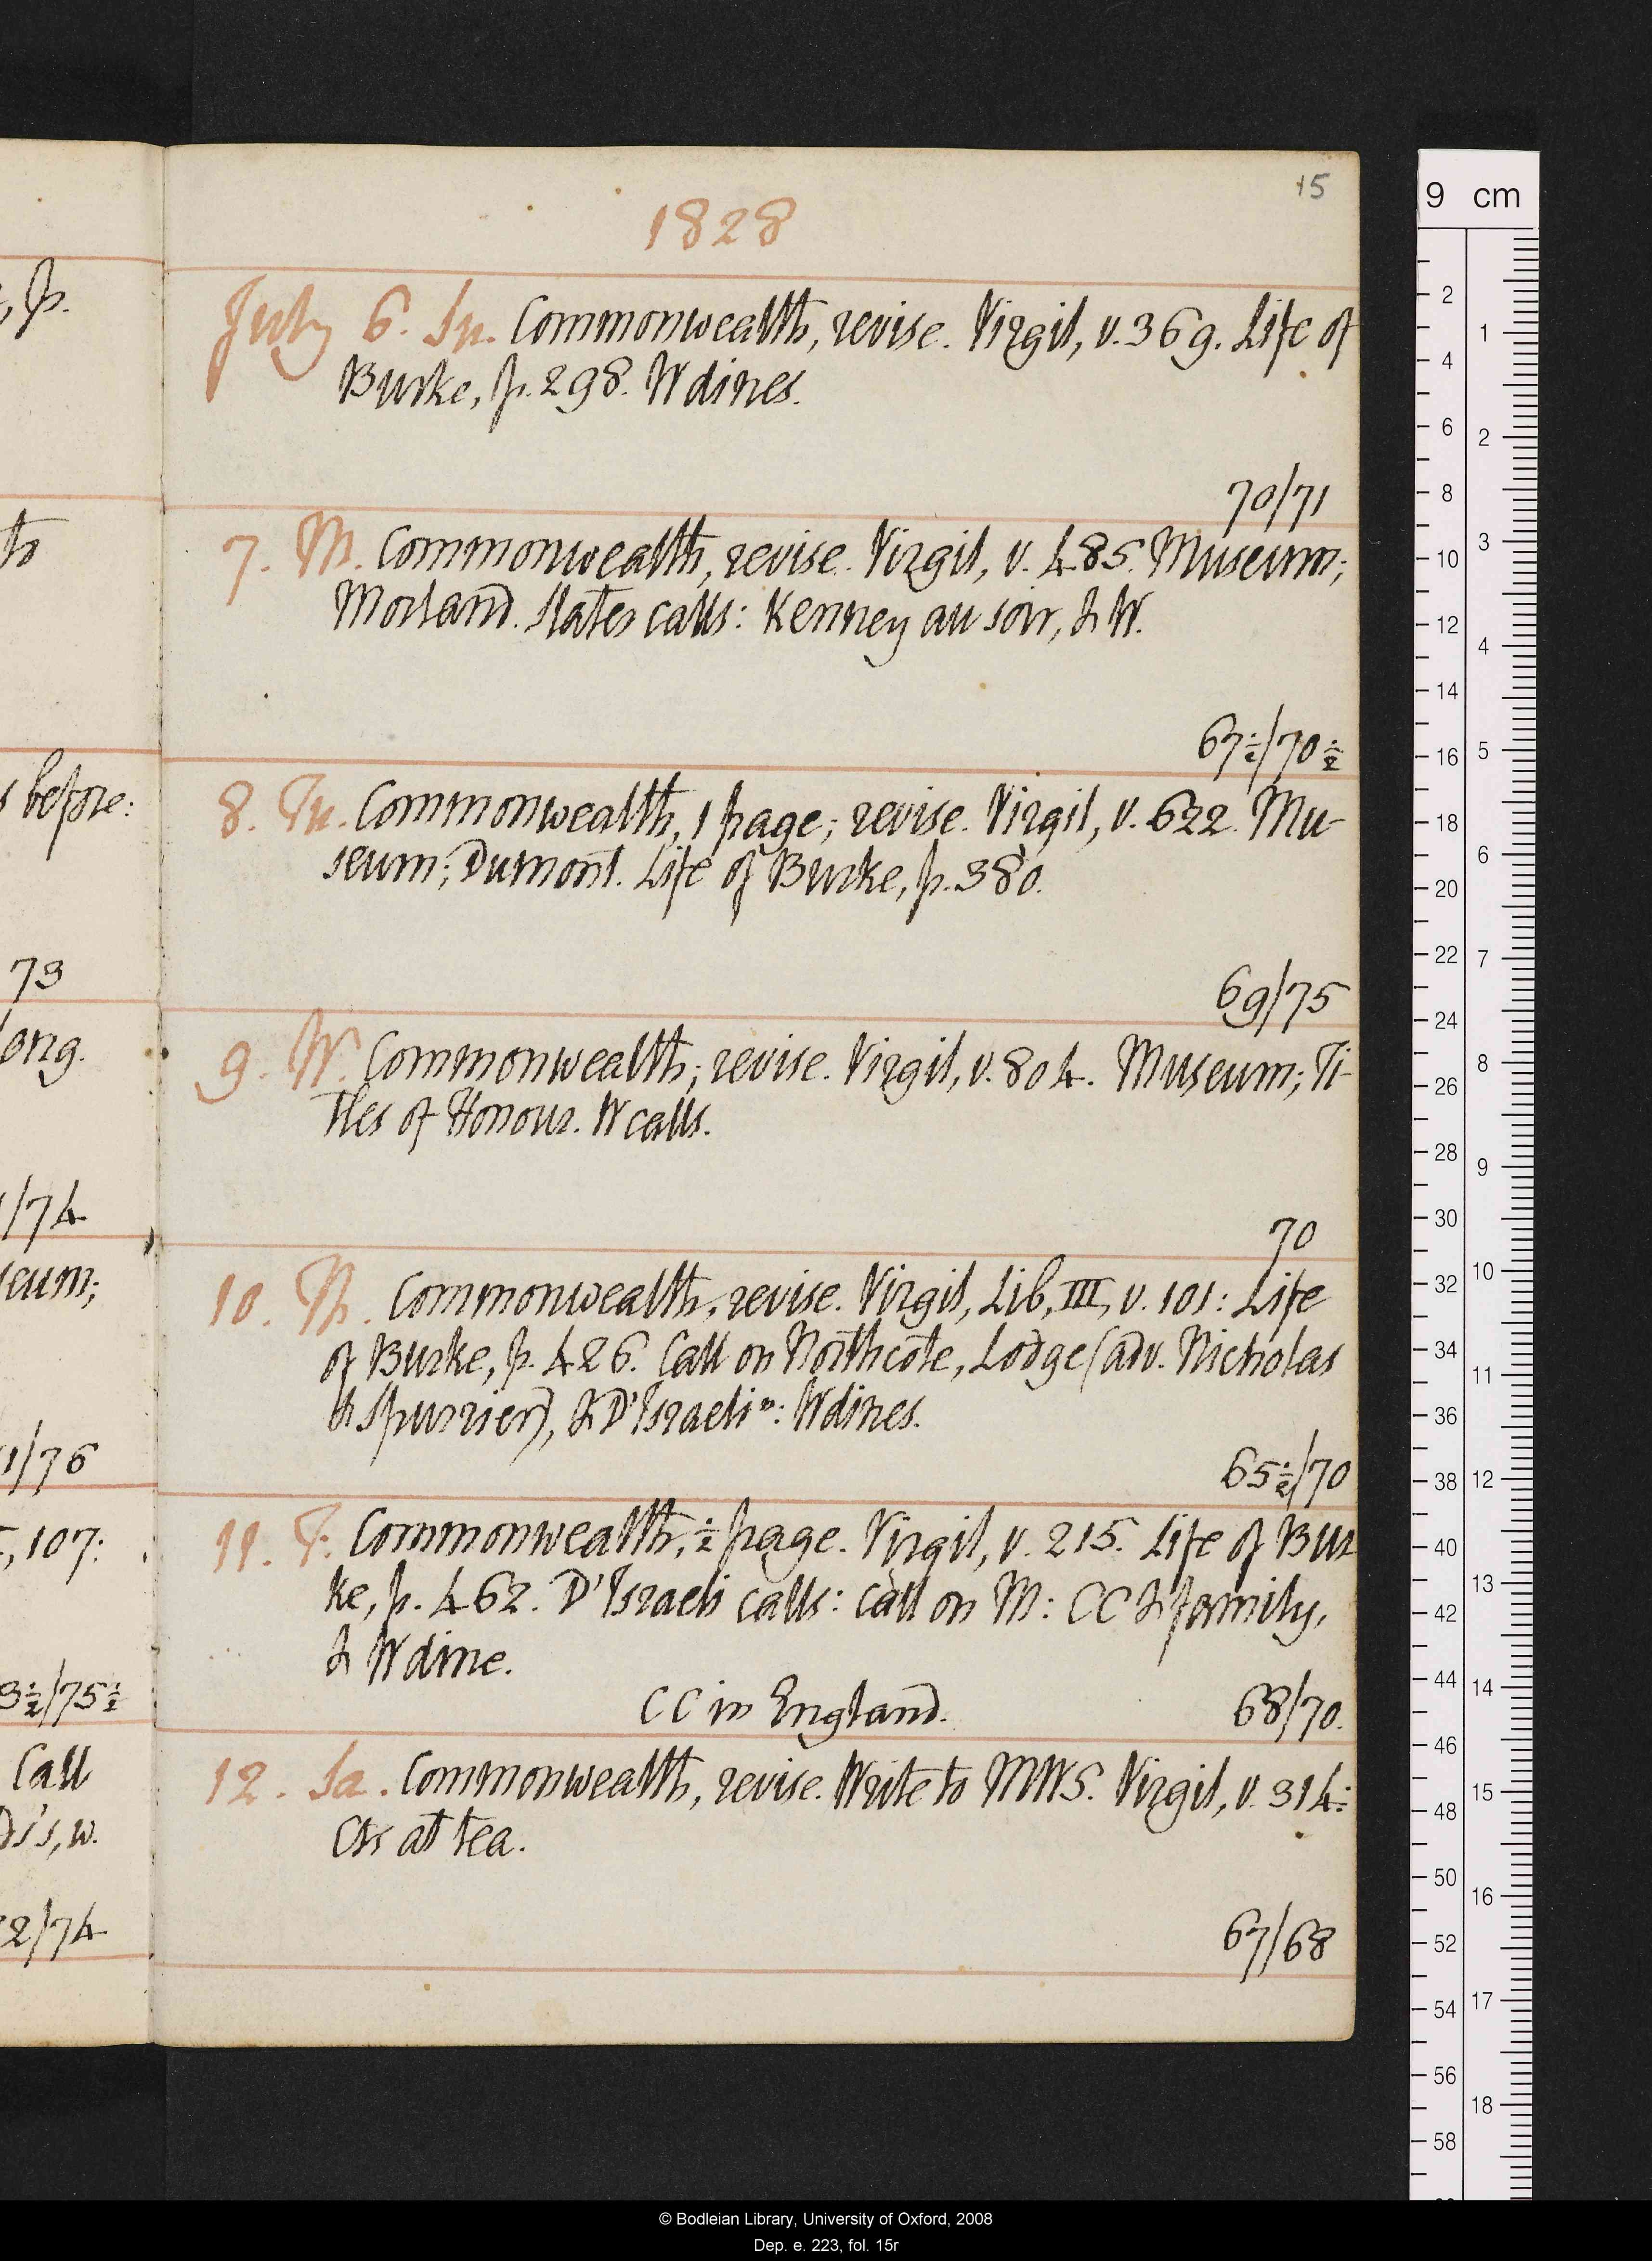 15
1828
July 6. Su. Commonwealth, revise. Virgil, v. 369. Life of
Burke, p. 298. W dines.
70/71
7. M. Commonwealth, revise. Virgil, v. 485. Museum;
Morland. Slater calls: Kenney au soir, & W.
67½/70½
8. Tu. Commonwealth, 1 page; revise. Virgil, v. 622. Mu-
seum; Dumont. Life of Burke, p. 380.
69/75
9. W. Commonwealth; revise. Virgil, v. 804. Museum; Ti-
tles of Honour. W calls.
70
10. Th. Commonwealth, revise. Virgil, Lib. III, v. 101: Life
of Burke, p. 426. Call on Northcote, Lodge (adv. Nicholas
& Spurrier), & D'Israeli n: W dines.
65½/70
11. F. Commonwealth, ½ page. Virgil, v. 215. Life of Bur
ke, p. 462. D'Israeli calls: call on M: CC & family,
& W dine.
CC in England. 68/70.
12. Sa. Commonwealth, revise. Write to MWS. Virgil, v. 314:
at tea.
67/68
, p.
to
before:
73
ong.
/74
seum;
1/76
, 107:
3½/75½
Call
's, w.
2/74
9 cm
2
4
6
8
10
12
14
16
18
20
22
24
26
28
30
32
34
36
38
40
42
44
46
48
50
52
54
56
58
1
2
3
4
5
6
7
8
9
10
11
12
13
14
15
16
17
18
© Bodleian Library, University of Oxford, 2008
Dep. e. 223, fol. 15r